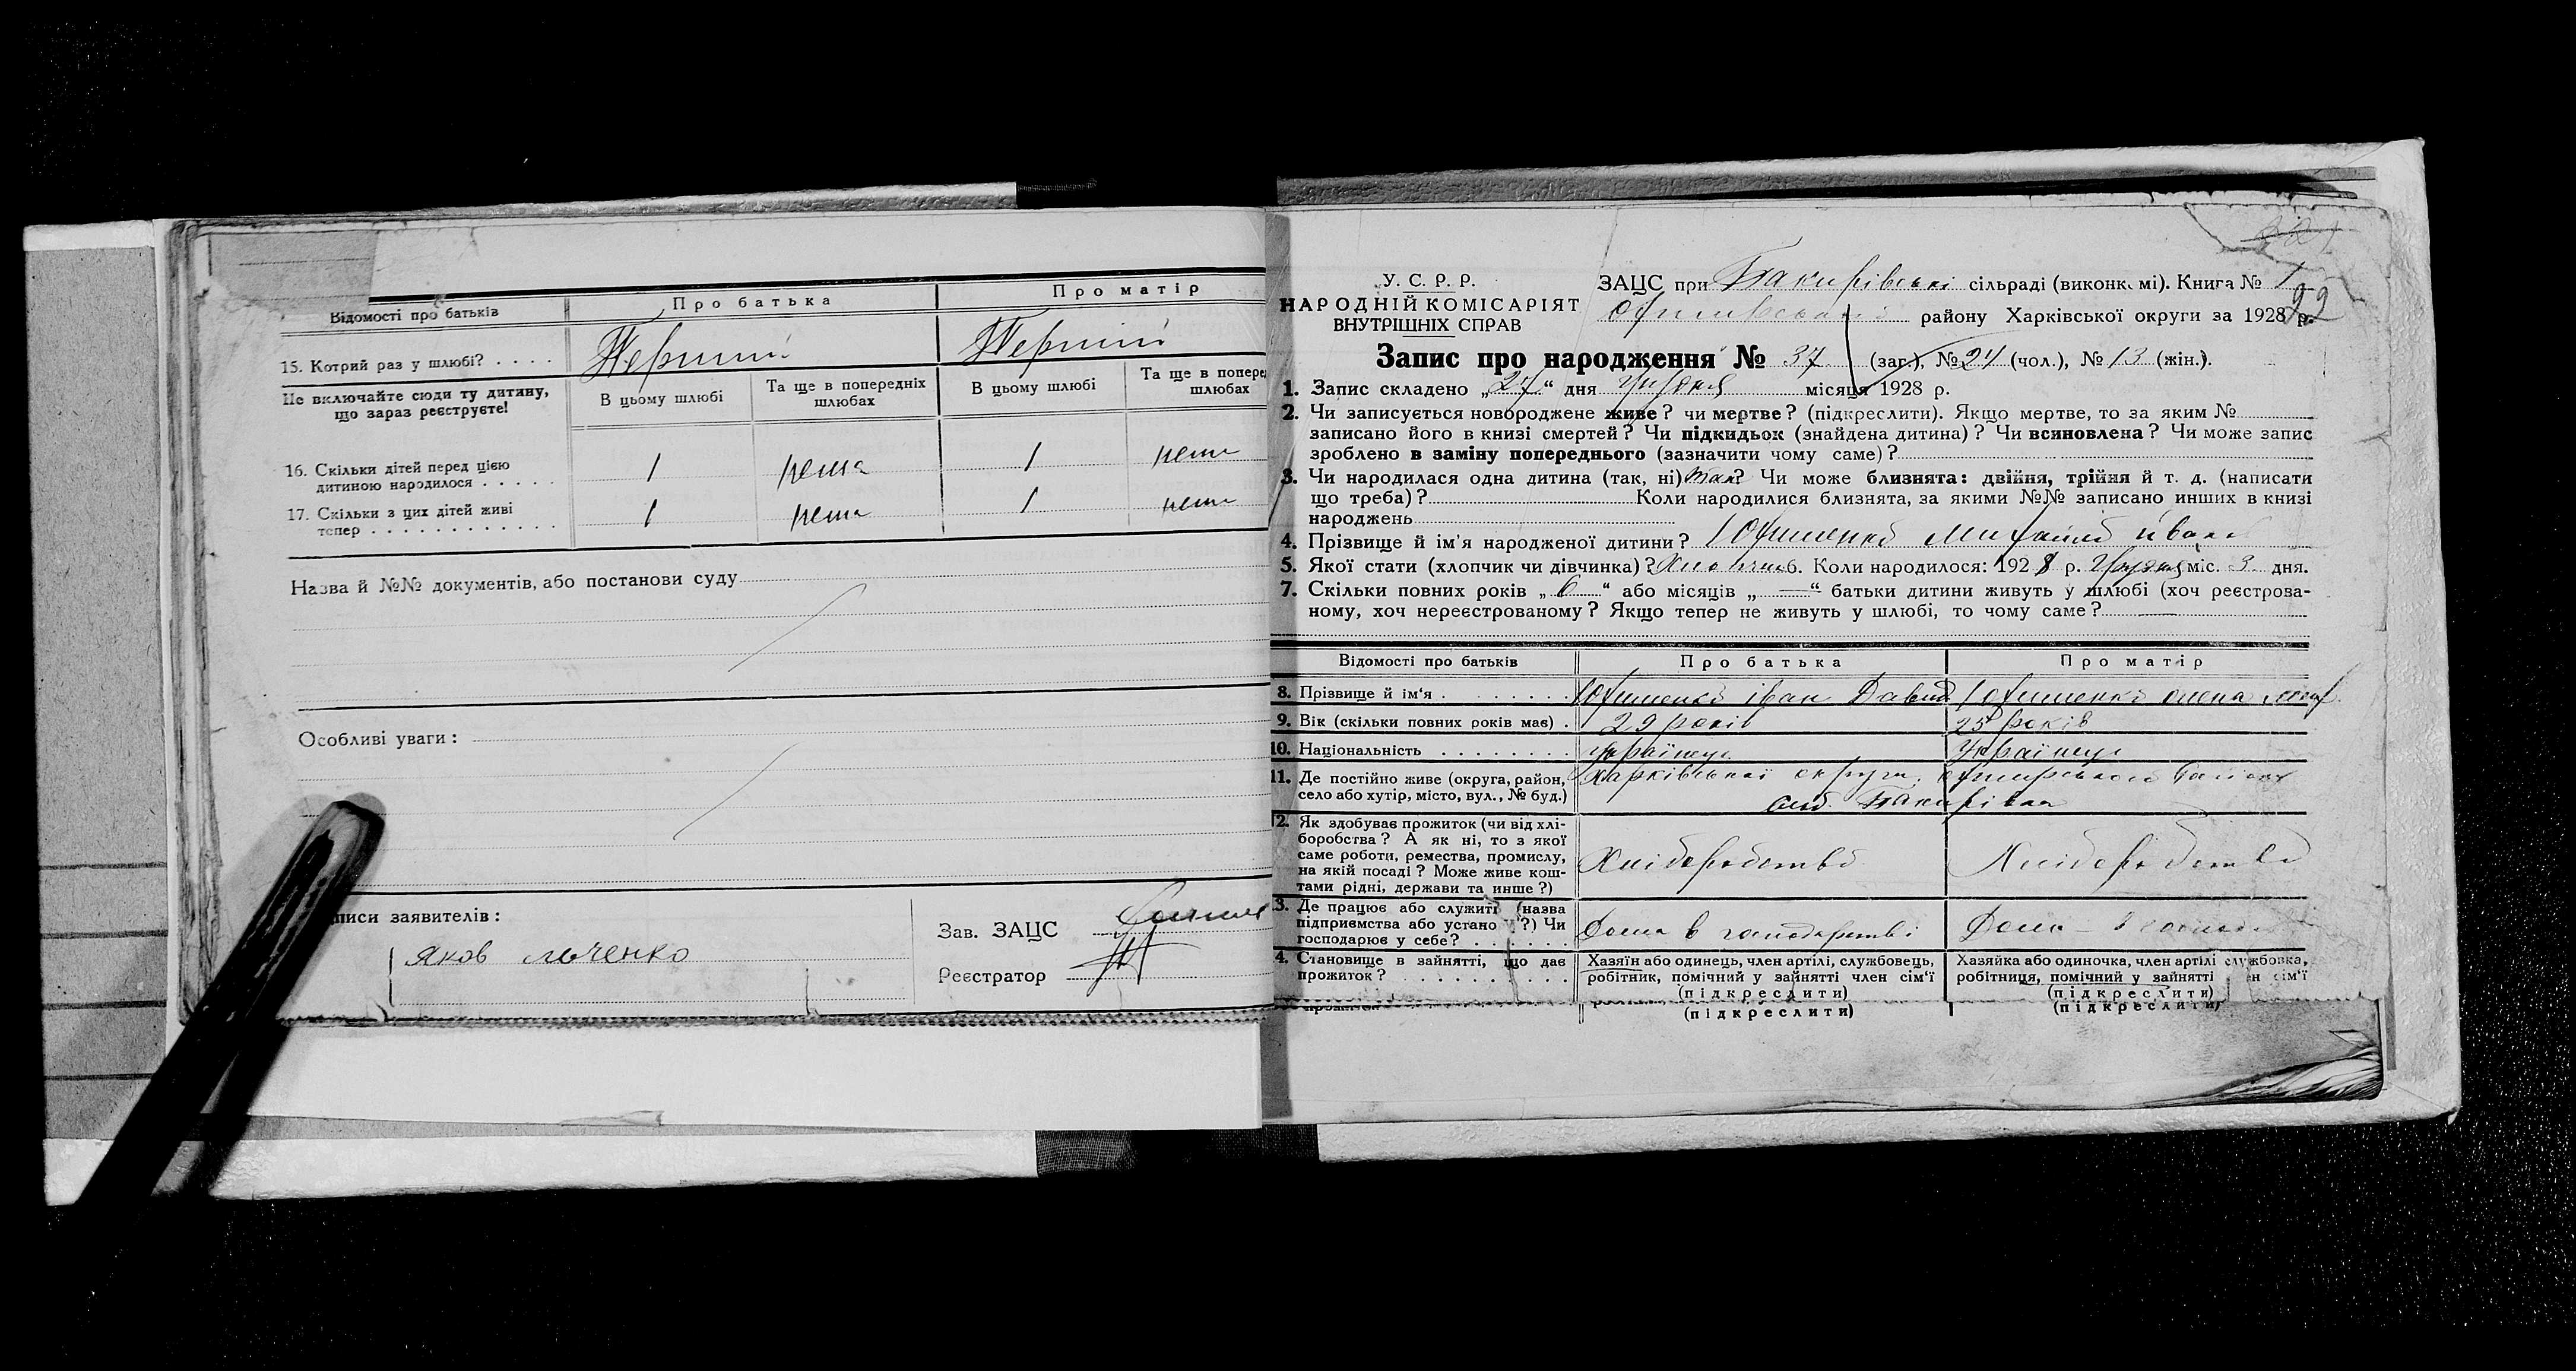 Відомості про батьків
Про батька
Про матір
15. Котрий раз у шлюбі? . . . .
Перший
Перший
Не включайте сюди ту дитину,
що зараз реєструєте!
В цьому шлюбі
Та ще в попередніх
шлюбах
В цьому шлюбі
Та ще в поперед
шлюбах
16. Скільки дітей перед цією
дитиною народилося . . . . .
1
нема
1
нема
17. Скільки з цих дітей живі
тепер . . . . . . . . . . . . .
1
нема
1
нема
Назва й №№ документів, або постанови суду
Особливі уваги:
писи заявителів:
Яков
Зав. ЗАЦС
Реєстратор
У. С. Р. Р.
НАРОДНІЙ КОМІСАРІЯТ
ВНУТРІШНІХ СПРАВ
ЗАЦС при Бакирівські сільраді (виконк. мі). Книга № 1
92
району Харківської округи за 1928 р.
Запис про народження № 37 (заг.), № 24 (чол.), № 13 (жін.).
1. Запис складено „27“ дня грудня місяця 1928 р.
2. Чи записується новороджене живе? чи мертве? (підкреслити). Якщо мертве, то за яким №
записано його в книзі смертей? Чи підкидьок (знайдена дитина)? Чи всиновлена? Чи може запис
зроблено в заміну попереднього (зазначити чому саме)?
3. Чи народилася одна дитина (так, ні) так? Чи може близнята: двійня, трійня й т. д. (написати
що треба)? Коли народилися близнята, за якими №№ записано инших в книзі
народжень
4. Прізвище й ім'я народженої дитини? Юхименко Михайло Іван
5. Якої статі (хлопчик чи дівчинка)? Хлопчик 6. Коли народилося: 1928 р. Грудня міс. 3 дня.
7. Скільки повних років „6“ або місяців „—“ батьки дитини живуть у шлюбі (хоч реєстрова-
ному, хоч нереєстрованому? Якщо тепер не живуть у шлюбі, то чому саме? —
Відомості про батьків
Про батька
Про матір
8. Прізвище й ім'я . . . . . . . .
Юхименко Іван Давид
Юхименко Олена
9. Вік (скільки повних років має) .
29 років
25 років
10. Національність . . . . . . . .
Українец
Українец
11. Де постійно живе (округа, район,
село або хутір, місто, вул., № буд.)
Харківської округи, Охтирського району
слоб. Бакирівка
12. Як здобуває прожиток (чи від хлі-
боробства? А як ні, то з якої
саме роботи, ремества, промислу,
на якій посаді? Може живе кош-
тами рідні, держави та инше?)
Хліборобство
Хліборобство
3. Де працює або служить (назва
підприємства або устано ?) Чи
господарює у себе? . . . . . .
Дома в господарстві
Дома в господ
4. Становище в зайнятті, що дає
прожиток? . . . . . . . . .
Хазяїн або одинець, член артілі, службовець,
робітник, помічний у зайнятті член сім'ї
(підкреслити)
Хазяйка або одиночка, член артілі службовка,
робітниця, помічний у зайнятті н сім'ї
(підкреслити)
(підкреслити)
(підкреслити)